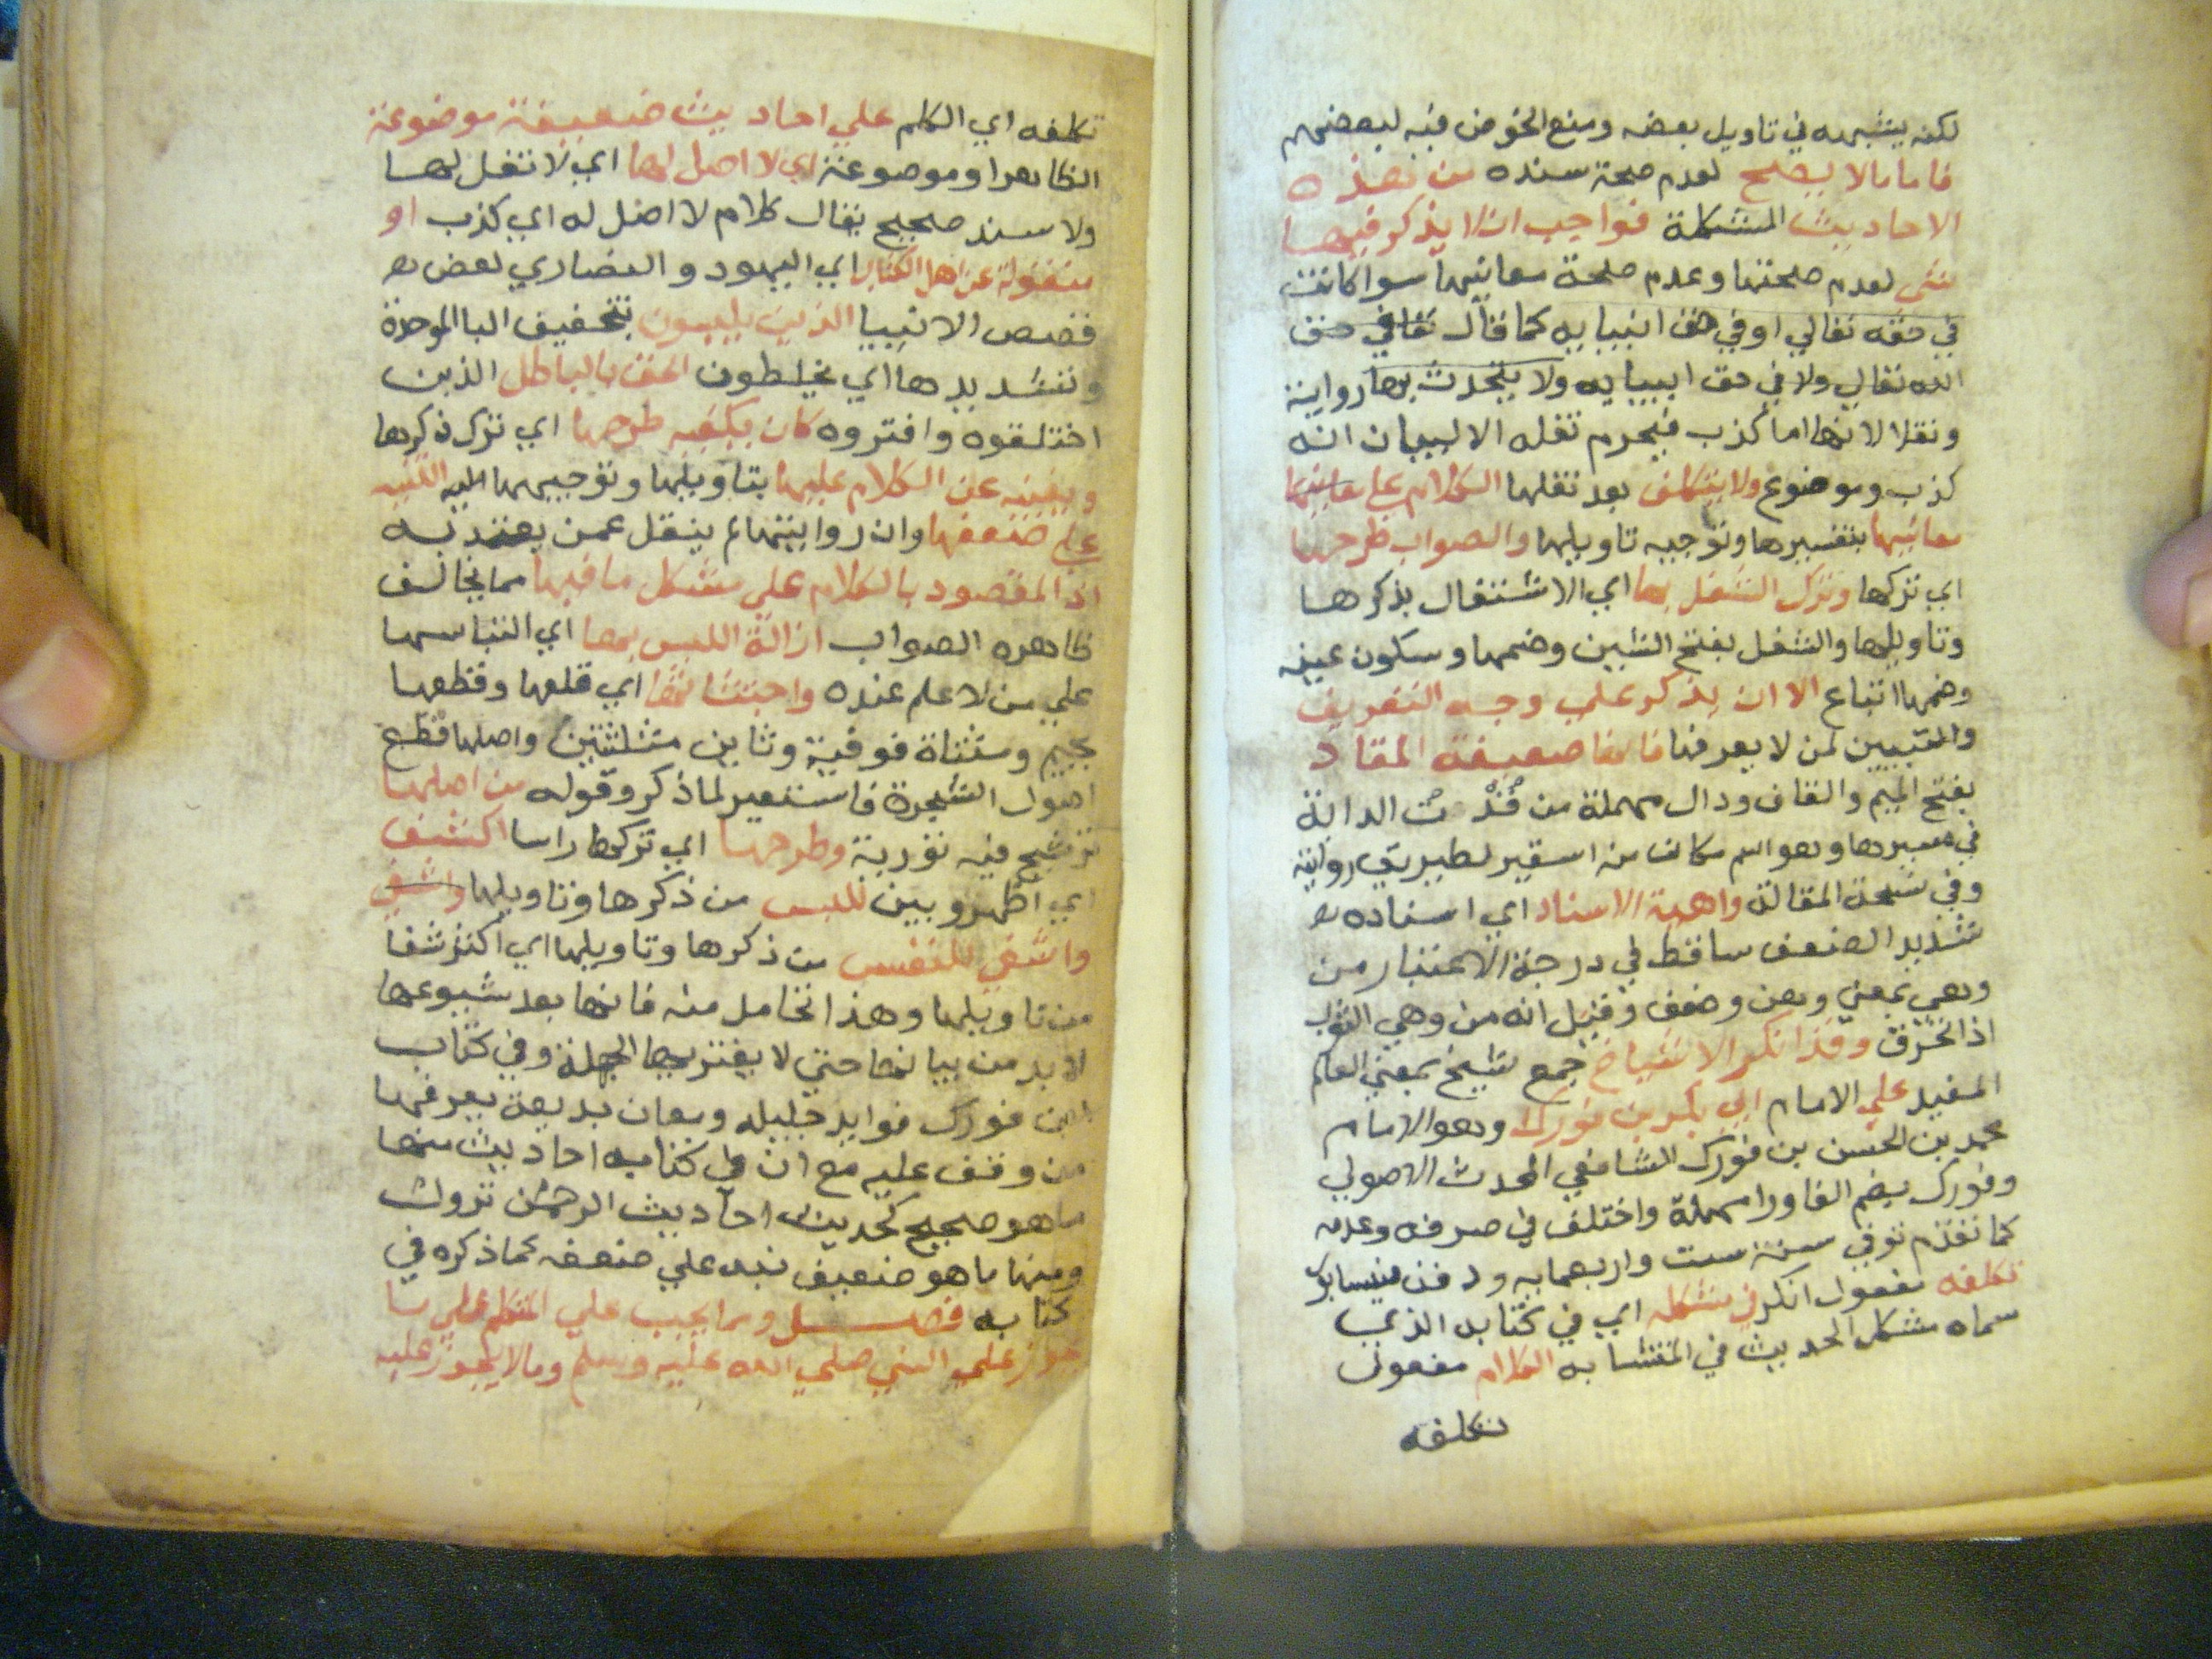 لكنه يشبهه في تاويل بعضه ومنع الخوض فيه لبعضهم
فاما ما لا يصح لعدم صحة سنده من هذه
الاحاديث المشكلة فواجب ان لا يذكر فيها
شي لعدم صحتها وعدم صحة معانيها سوا كانت
في حقه تعالي او في حق انبيايه كما قال تعالي حق
الله تعالي ولا في حق انبيايه ولا يتحدث بها رواية
ونقلا لانها اما كذب فيحرم نقله الا لبيان انه
كذب وموضوع ولا يتكلف بعد نقلها الكلام علي معانيها
معانيها بتفسيرها وتوجيه تاويلها والصواب طرحها
اي تركها وترك الشغل بها اي الاشتغال بذكرها
وتاويلها والشغل بفتح الشين وضمها وسكون عينه
وضمها اتباع الا ان يذكر علي وجه التعريف
والتبيين لمن لا يعرفها فانها ضعيفة المقاد
بفتح الميم والقاف ودال مهملة من قدت الدابة
في سيرها وهو اسم مكان من استعير لطريق رواية
وفي نسخة المقالة واهية الاسناد اي اسناده
شديد الضعف ساقط في درجة الاعتبار من
وهي بمعني وهن وضعف وقيل انه من وهي الثوب
اذا انخرق وقد انكر الاشياخ جمع شيخ بمعني العالم
المفيد علي الامام ابي بكر بن فورك وهو الامام
محمد بن الحسن بن فورك الشافعي المحدث الاصولي
وفورك بضم الفا ورا مهملة واختلف في صرفه وعدمه
كما تقدم توفي سنة ست واربعمايه ودفن بنيسابور
تكلفه مفعول انكر في مشكله اي في كتابه الذي
سماه مشكل الحديث في المتشابه الكلام مفعول
تكلفه
تكلفه اي الكلم علي احاديث ضعيفة موضوعة
الظاهر او موضوعة اي لا اصل لها اي لا نقل لها
ولا سند صحيح يقال كلام لا اصل له اي كذب او
منقولة عن اهل الكتاب اي اليهود والنصاري لبعض
قصص الانبيا الذين يلبسون بتخفيف البا الموحدة
وتشديدها اي يخلطون الحق بالباطل الذين
اختلقوه وافتروه كان يكفيه طرحها اي ترك ذكرها
ويغنيه عن الكلام عليها بتاويلها وتوجيهها التنبيه
علي ضعفها وان روايتها لم ينقل عمن يعتد به
اذ المقصود بالكلام علي مشكل ما فيها مما يخالف
ظاهره الصواب ازالة اللبس بها اي التباسها
علي من لا علم عنده واجتثاثها اي قلعها وقطعها
بجيم ومثناة فوقية وثاين مثلثتين واصلها قطع
اصول الشجرة فاستعير لما ذكر وقوله من اصلها
ترشيح فيه تورية وطرحها اي تركها راسا اكشف
اي اظهر وبين للبس من ذكرها وتاويلها واشفي
واشفي للنفس من ذكرها وتاويلها اي اكثر شفا
من تاويلها وهذا تحامل منه فانها بعد شيوعها
لا بد من بيانها حتي لا يغتر بها الجهلة وفي كتاب
ابن فورك فوايد جليله ومعان بديعة يعرفها
من وقف عليه مع ان في كتابه احاديث منها
ما هو صحيح كحديث احاديث الرحمن تروك
ومنها ما هو ضعيف نبه علي ضعفه كما ذكره في
كتابه فصل ومما يجب علي المتكلم علي ما
يجوز علي النبي صلي الله عليه وسلم وما لا يجوز عليه